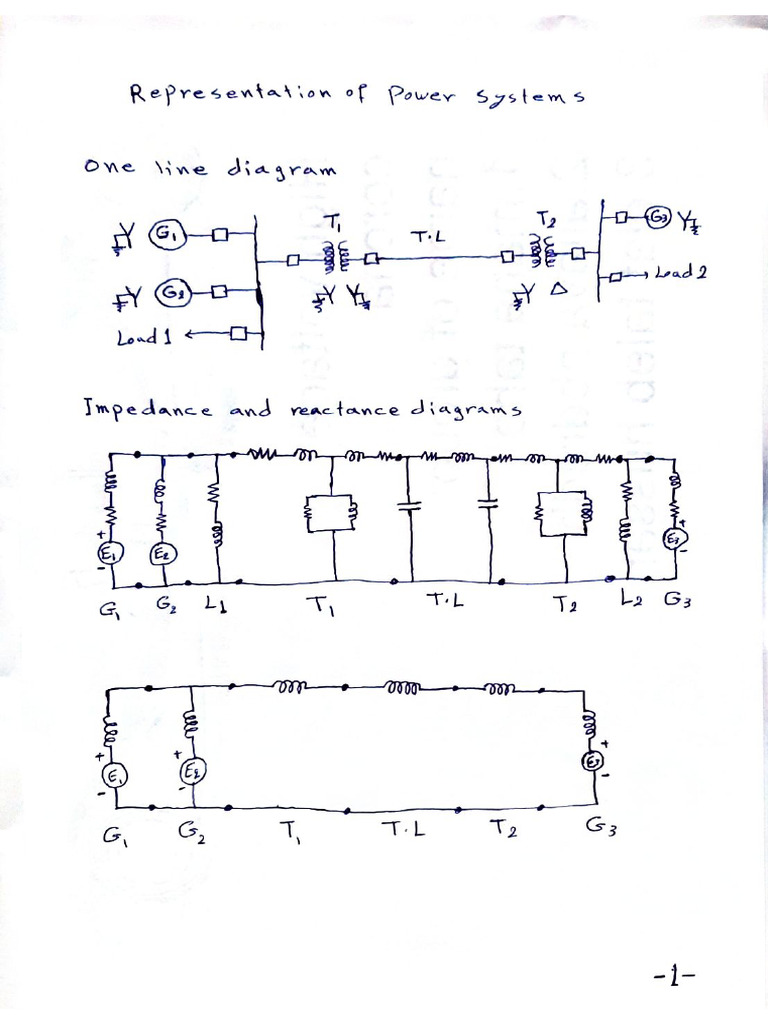 Representation of Power Systems
One line diagram
G1
T1
T.L
T2
G3
G2
Load 2
Load 1
Δ
Impedance and reactance diagrams
+ E1 -
E2
+ E3 -
G1 G2 L1 T1 T.L T2 L2 G3
+ E1 -
+ E2 -
+ E3 -
G1 G2 T1 T.L T2 G3
-1-